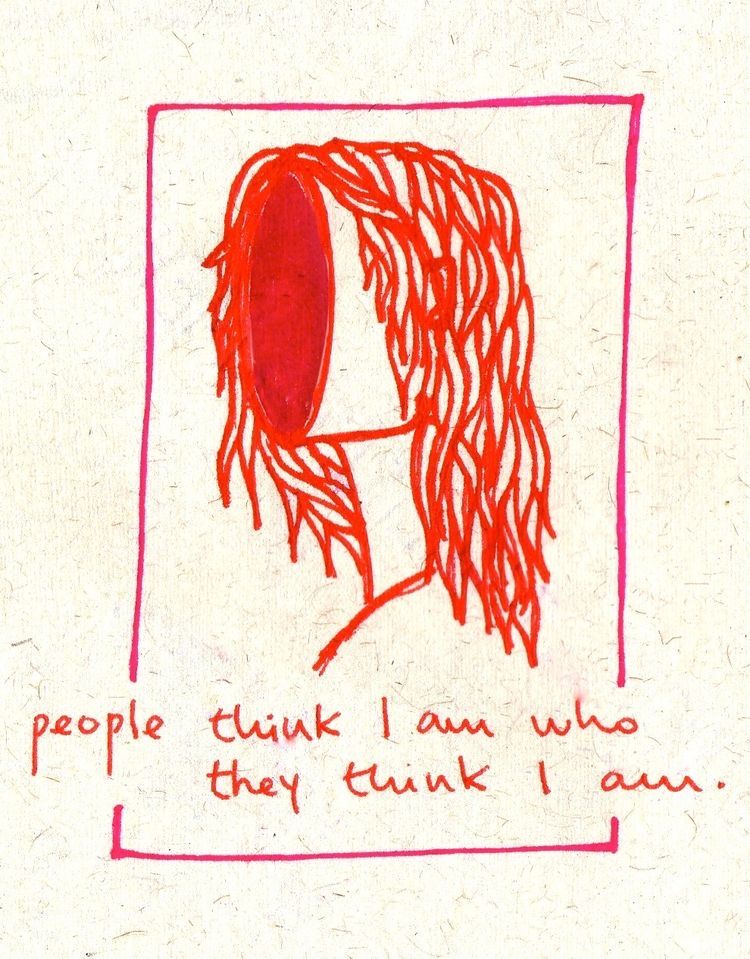 people think I am who
they think I am.